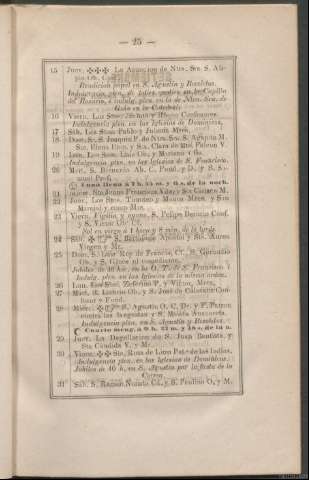 — 25 —
15 Juev. ✠✠✠ La Asuncion de Ntra. Sra. S. Ali-
pio Ob. C.
Bendicion papal en S. Agustin y Recoletos.
Indulgencia plen. de todos santos en la Capilla
del Rosario, é indulg. plen. en la de Ntra. Sra. de
Gozo en la Catedral.
16 Viern. Los Stos. Jacinto y Roque Confesores.
Indulgencia plen. en las Iglesias de Dominicos.
17 Sáb. Los Stos. Pablo y Juliana Mrs.
18 Dom. S. Joaquin P. de Ntra. Sra. S. Agapito M.
Sta. Elena Emp. y Sta. Clara de Mte. Falcon V.
19 Lun. Los Stos. Luis Ob. y Mariano Cfs.
Indulgencia plen. en las Iglesias de S. Francisco.
20 Mart. S. Bernardo Ab. C. Fund. y D. y S. Sa-
muel Prof.
Luna llena á 7 h. 55 m. y 6 s. de la noch.
21 Miérc. Sta. Juana Francisca Viud. y S. Ciriaco M.
22 Juev. Los Stos. Timoteo y Mauro Mrs. y San
Marcial y comp. Mrs.
23 Viern. Vigilia y ayuno. S. Felipe Benicio Conf.
y S. Victor Ob. Cf.
Sol en virgo á 1 hora y 8 min. de la tarde.
24 Sáb. ✠ S. Bartolomé Apóstol y Sta. Aurea
Virgen y Mr.
25 Dom. S. Luis Rey de Francia, Cf. S. Geruncio
Ob. y S. Gines el comediante.
Jubileo de 40 hor. en la O. T. de S. Francisco é
Indulg. plen. en las Iglesias de la misma orden.
26 Lun. Los Stos. Zeferino P. y Victor, Mrs.
27 Mart. S. Licerio Ob. y S. José de Calasanz Con-
fesor y Fund.
28 Miérc. ✠ S. Agustin O. C. Dr. y P. Patron
contra las langostas y S. Moisés Anacoreta.
Indulgencia plen. en S. Agustin y Recoletos.
Cuarto meng. á 9 h. 27 m. y 48 s. de la n.
29 Juev. La Degollacion de S. Juan Bautista y
Sta. Cándida V. y Mr.
30 Viern. ✠✠ Sta. Rosa de Lima Pat. de las Indias.
Indulgencia plen. en las Iglesias de Dominicos.
Jubileo de 40 h. en S. Agustin por la fiesta de la
Correa
31 Sáb. S. Ramon Nonato Cd. y S. Paulino O. y M.